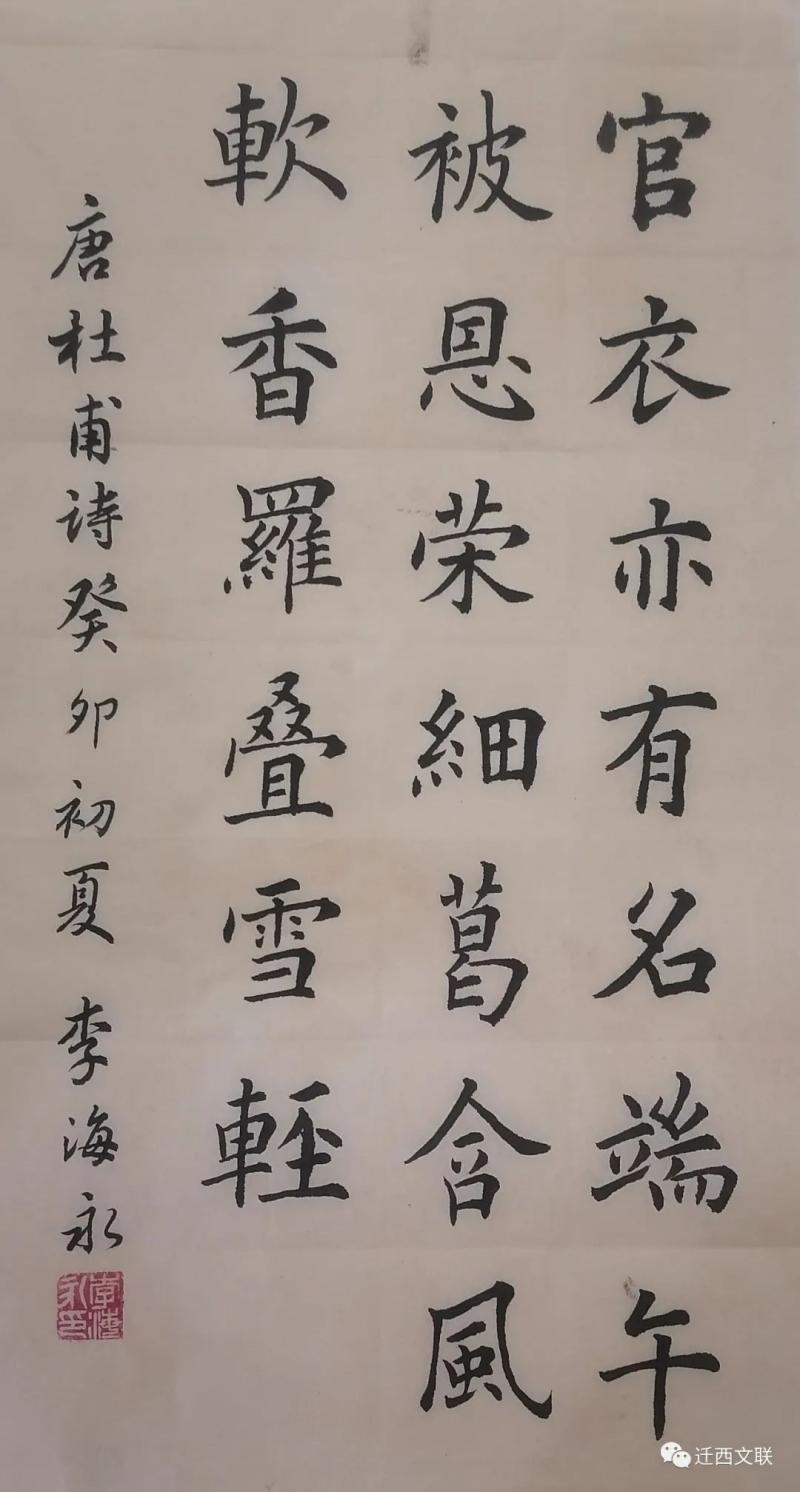 官衣亦有名端午
被恩荣細葛含風
軟香羅叠雪輕
唐杜甫詩癸卯初夏 李海永
李海永印
迁西文联